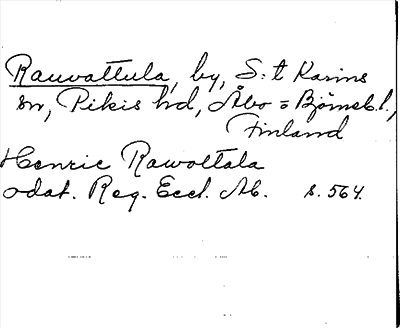 Rauvattula, by, S:t Karins
sn, Pikis hd, Åbo = Björneb. l.,
Finland
Henric Rawoltala
odat. Reg. Eccl. Ab. s. 564.